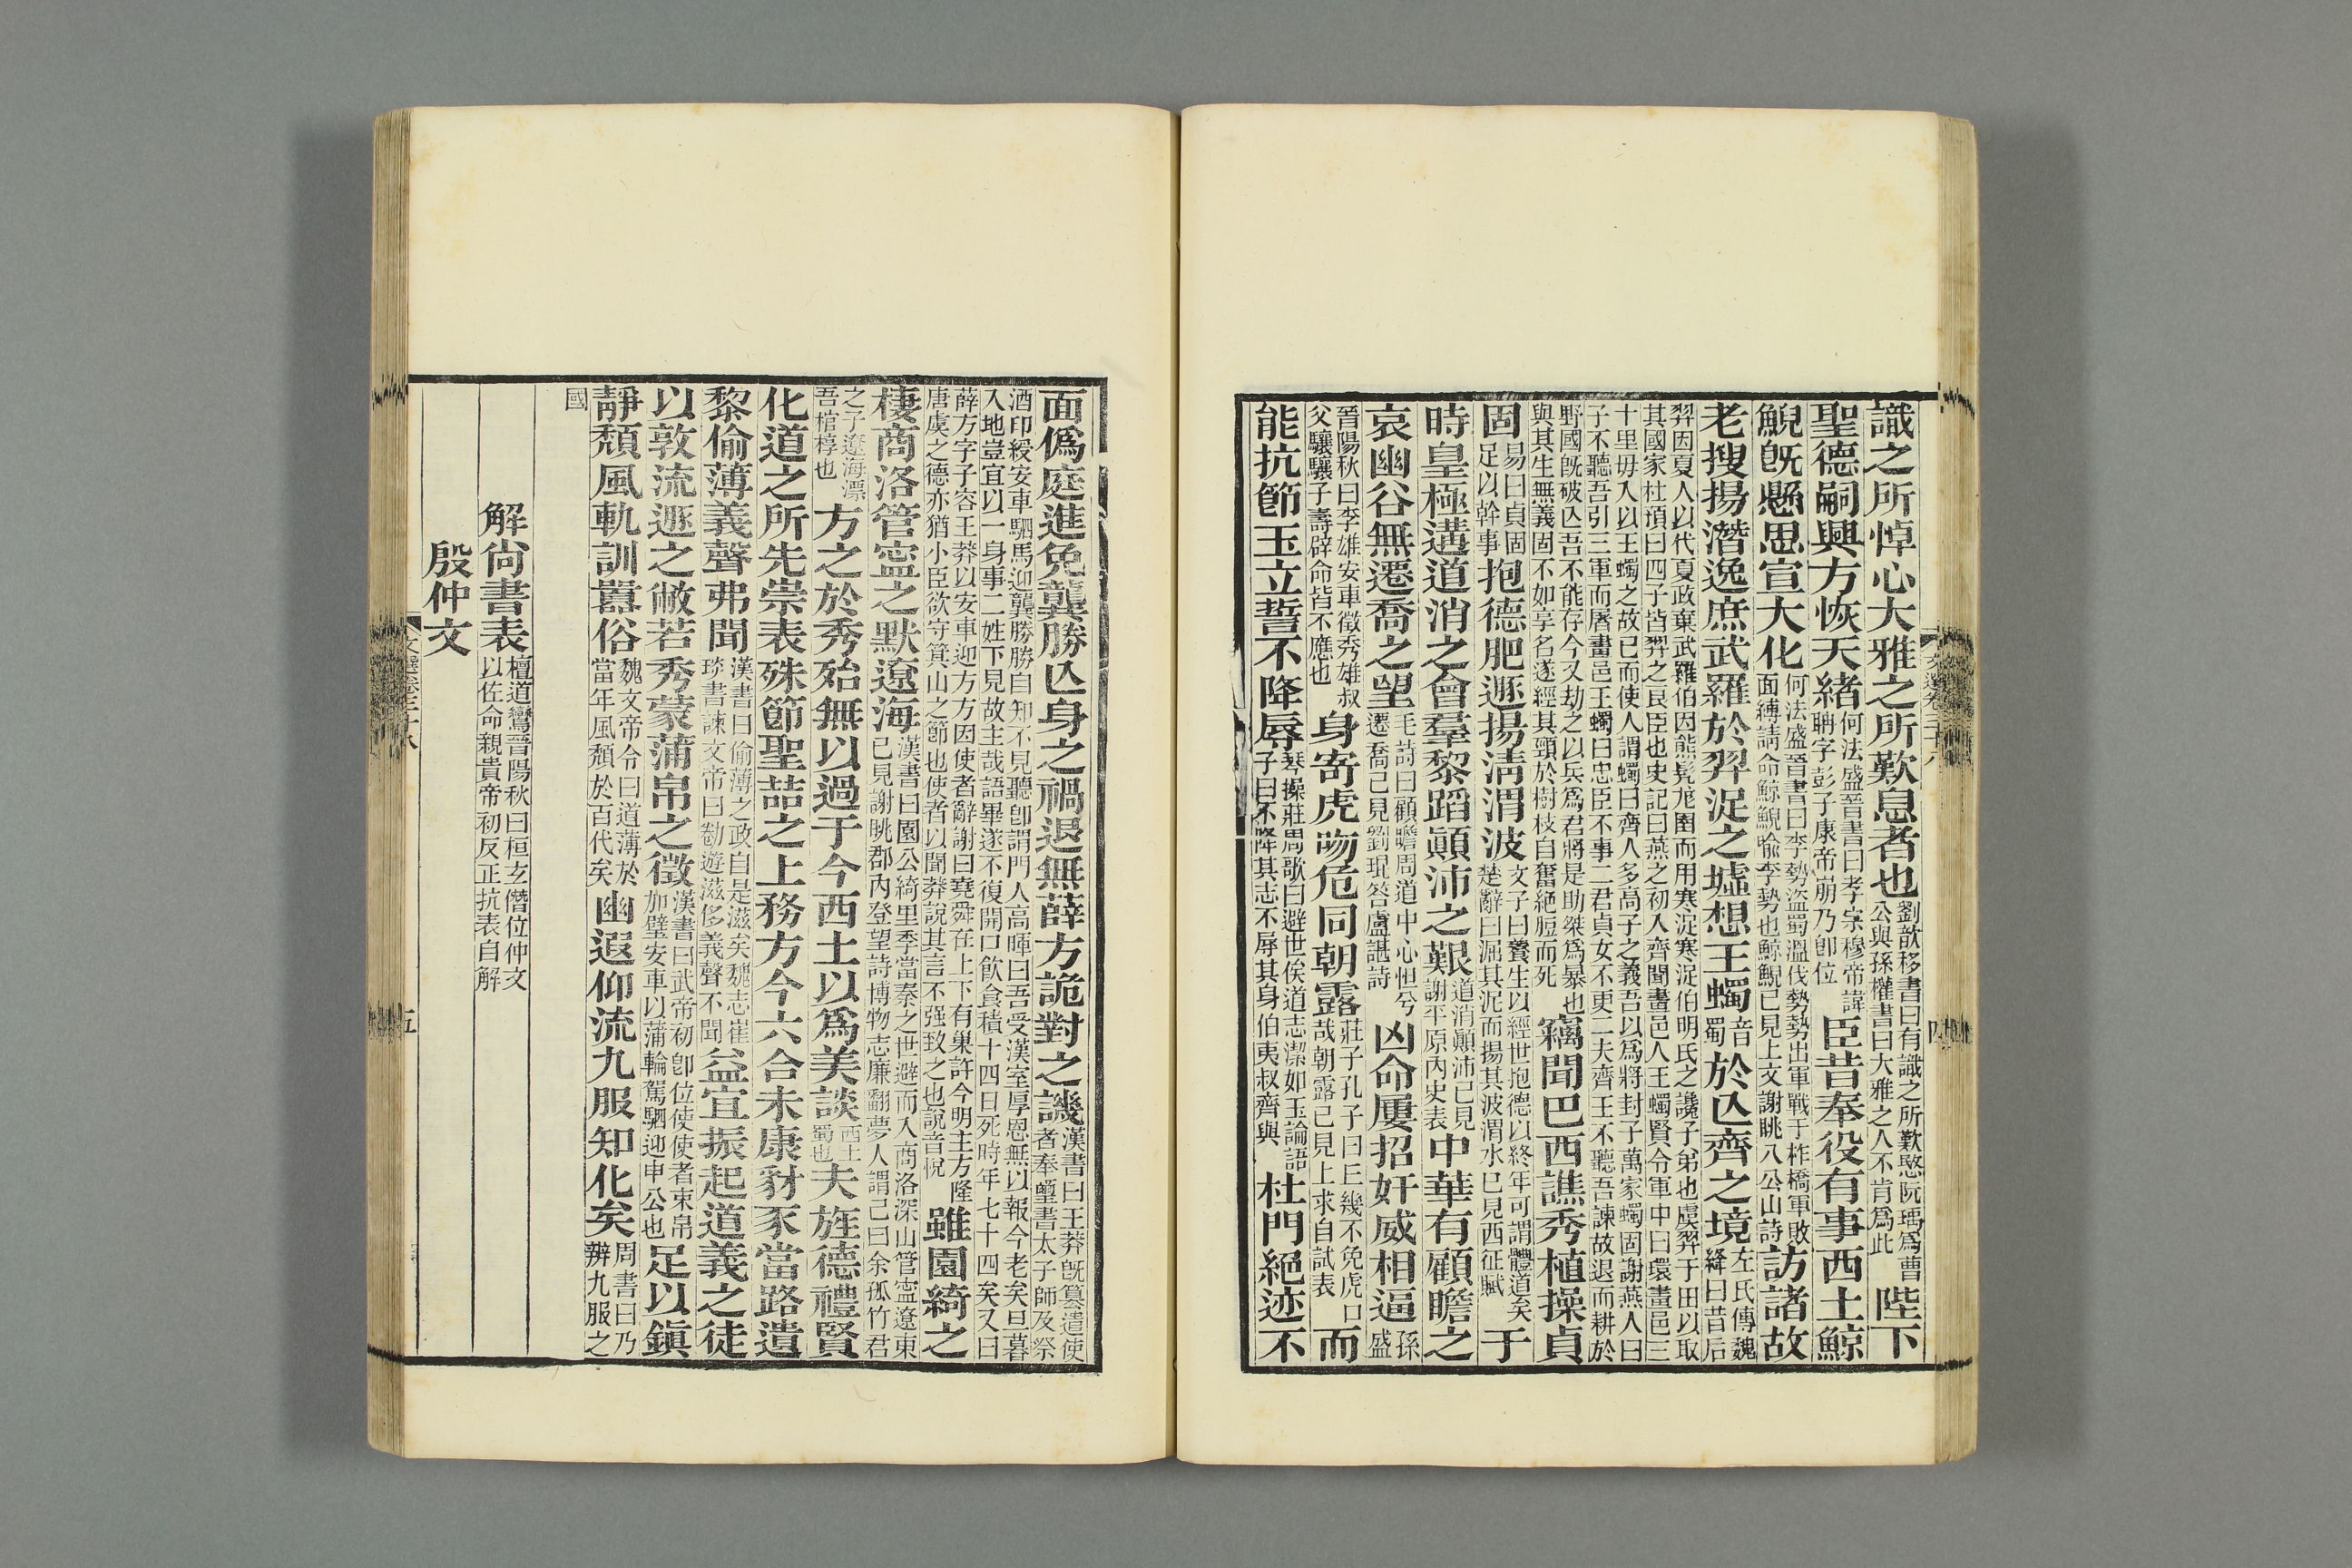 識之所悼心大雅之所歎息者也劉歆移書曰有識之所歎愍阮瑀爲曹公與孫權書曰大雅之人不肯爲此陛下
聖德嗣興方恢天緒何法盛晉書曰孝宗穆帝諱聃字彭子康帝崩乃卽位臣昔奉役有事西土鯨
鯢旣懸思宣大化何法盛晉書曰李勢盜蜀溫伐勢勢出軍戰于柞橋軍敗面縛請命鯨鯢喻李勢也鯨鯢已見上文謝眺八公山詩訪諸故
老搜揚潛逸庶武羅於羿浞之墟想王蠋音蜀於亾齊之境左氏傳魏絳曰昔后
羿因夏人以代夏政棄武羅伯因熊髡尨圉而用寒浞寒浞伯明氏之讒子弟也虞羿于田以取其國家杜預曰四子皆羿之良臣也史記曰燕之初入齊聞畫邑人王蠋賢令軍中曰環畫邑三
十里毋入以王蠋之故已而使人謂蠋曰齊人多高子之義吾以爲將封子萬家蠋固謝燕人曰子不聽吾引三軍而屠畫邑王蠋曰忠臣不事二君貞女不更二夫齊王不聽吾諫故退而耕於
野國旣破亾吾不能存今又劫之以兵爲君將是助桀爲暴也與其生無義固不如享名遂經其頸於樹枝自奮絕脰而死竊聞巴西譙秀植操貞
固易曰貞固足以幹事抱德肥遯揚清渭波文子曰養生以經世抱德以終年可謂體道矣楚辭曰淈其泥而揚其波渭水已見西征賦于
時皇極遘道消之會羣黎蹈顚沛之艱道消顚沛已見謝平原內史表中華有顧瞻之
哀幽谷無遷喬之望毛詩曰顧瞻周道中心怛兮遷喬已見劉琨答盧諶詩凶命屢招奸威相逼孫盛
晉陽秋曰李雄安車徵秀雄叔父驤驤子壽辟命皆不應也身寄虎吻危同朝露莊子孔子曰丘幾不免虎口哉朝露已見上求自試表而
能抗節玉立誓不降辱琴操莊周歌曰避世俟道志潔如玉論語子曰不降其志不辱其身伯夷叔齊與杜門絕迹不
面僞庭進免龔勝亾身之禍退無薛方詭對之譏漢書曰王莽旣篡遣使者奉璽書太子師及祭
酒印綬安車駟馬迎龔勝勝自知不見聽卽謂門人高暉曰吾受漢室厚恩無以報今老矣旦暮入地豈宜以一身事二姓下見故主哉語畢遂不復開口飲食積十四日死時年七十四矣又曰
薛方字子容王莽以安車迎方方因使者辭謝曰堯舜在上下有巢許今明主方隆唐虞之德亦猶小臣欲守箕山之節也使者以聞莽說其言不强致之也說音悅雖園綺之
棲商洛管寍之默遼海漢書曰園公綺里季當秦之世避而入商洛深山管寍遼東已見謝眺郡內登望詩博物志廉翻夢人謂己曰余孤竹君
之子遼海漂吾棺椁也方之於秀殆無以過于今西土以爲美談西土蜀也夫旌德禮賢
化道之所先崇表殊節聖喆之上務方今六合未康豺豕當路遺
黎偷薄義聲弗聞漢書曰偷薄之政自是滋矣魏志崔琰書諫文帝曰勌遊滋侈義聲不聞益宜振起道義之徒
以敦流遯之敝若秀蒙蒲帛之徵漢書曰武帝初卽位使使者束帛加璧安車以蒲輪駕駟迎申公也足以鎭
靜頹風軌訓囂俗魏文帝令曰道薄於當年風頹於百代矣幽遐仰流九服知化矣周書曰乃辨九服之
國
解尙書表檀道鸞晉陽秋曰桓玄僭位仲文以佐命親貴帝初反正抗表自解
殷仲文
文選卷三十八
五